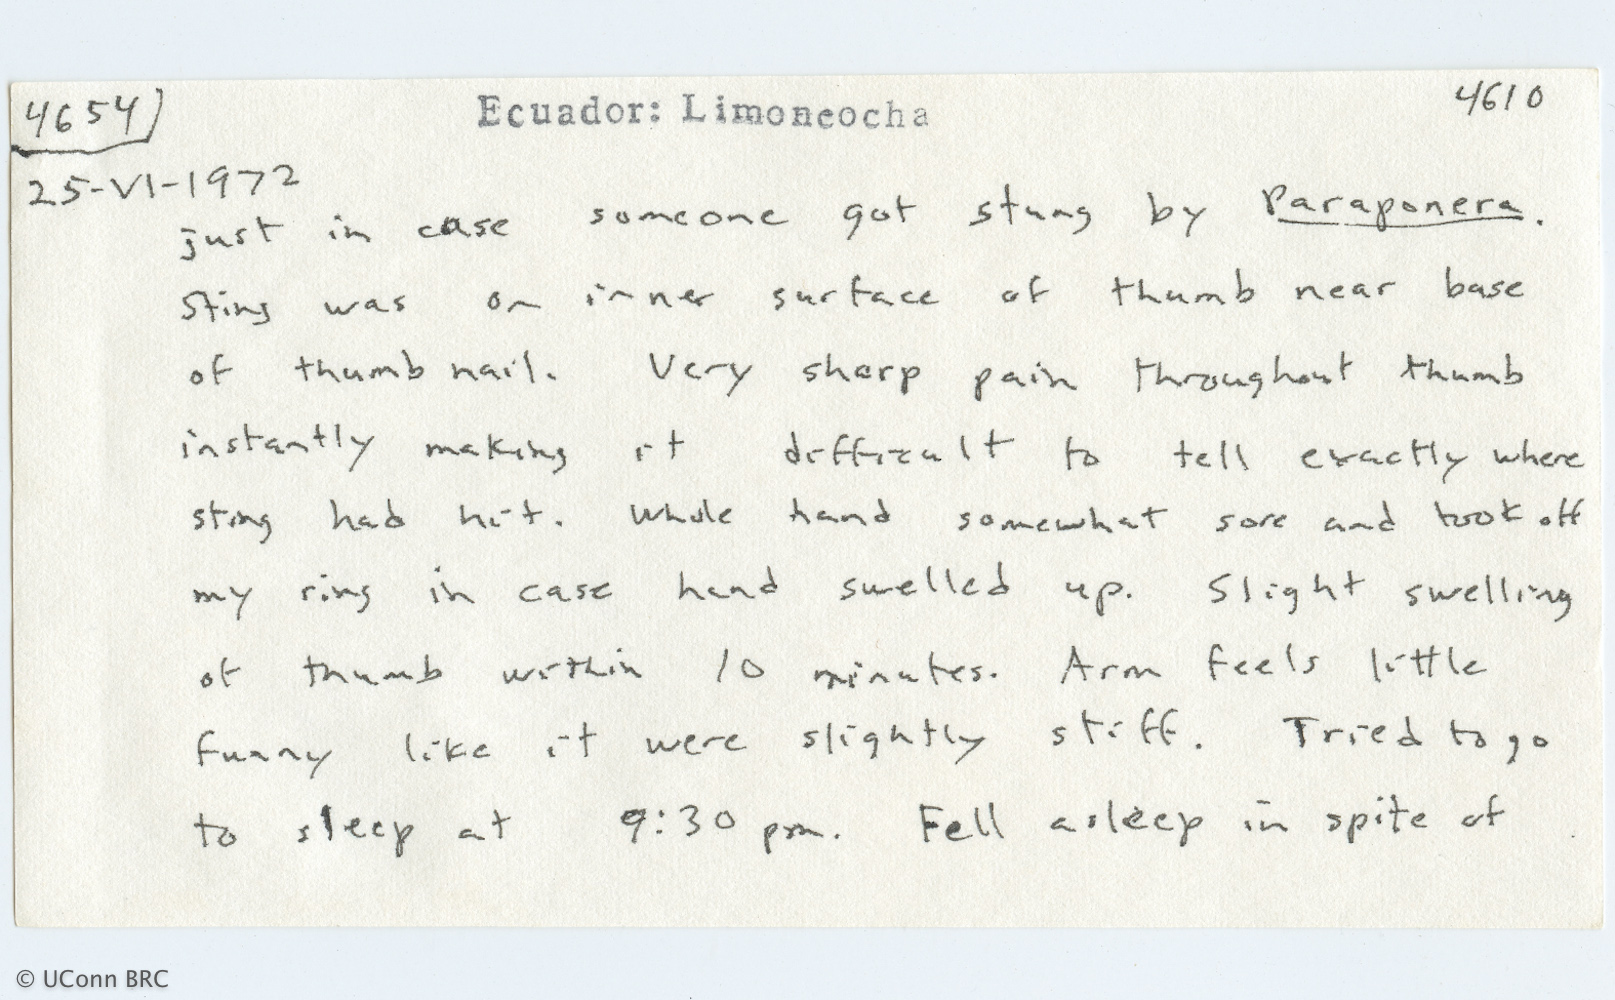 4654
Ecuador: Limoncocha
4610
25-VI-1972
just in case someone got stung by Paraponera.
Sting was on inner surface of thumb near base
of thumb nail. Very sharp pain throughout thumb
instantly making it difficult to tell exactly where
sting had hit. Whole hand somewhat sore and took off
my ring in case hand swelled up. Slight swelling
of thumb within 10 minutes. Arm feels little
funny like it were slightly stiff. Tried to go
to sleep at 9:30 pm. Fell asleep in spite of
© UConn BRC